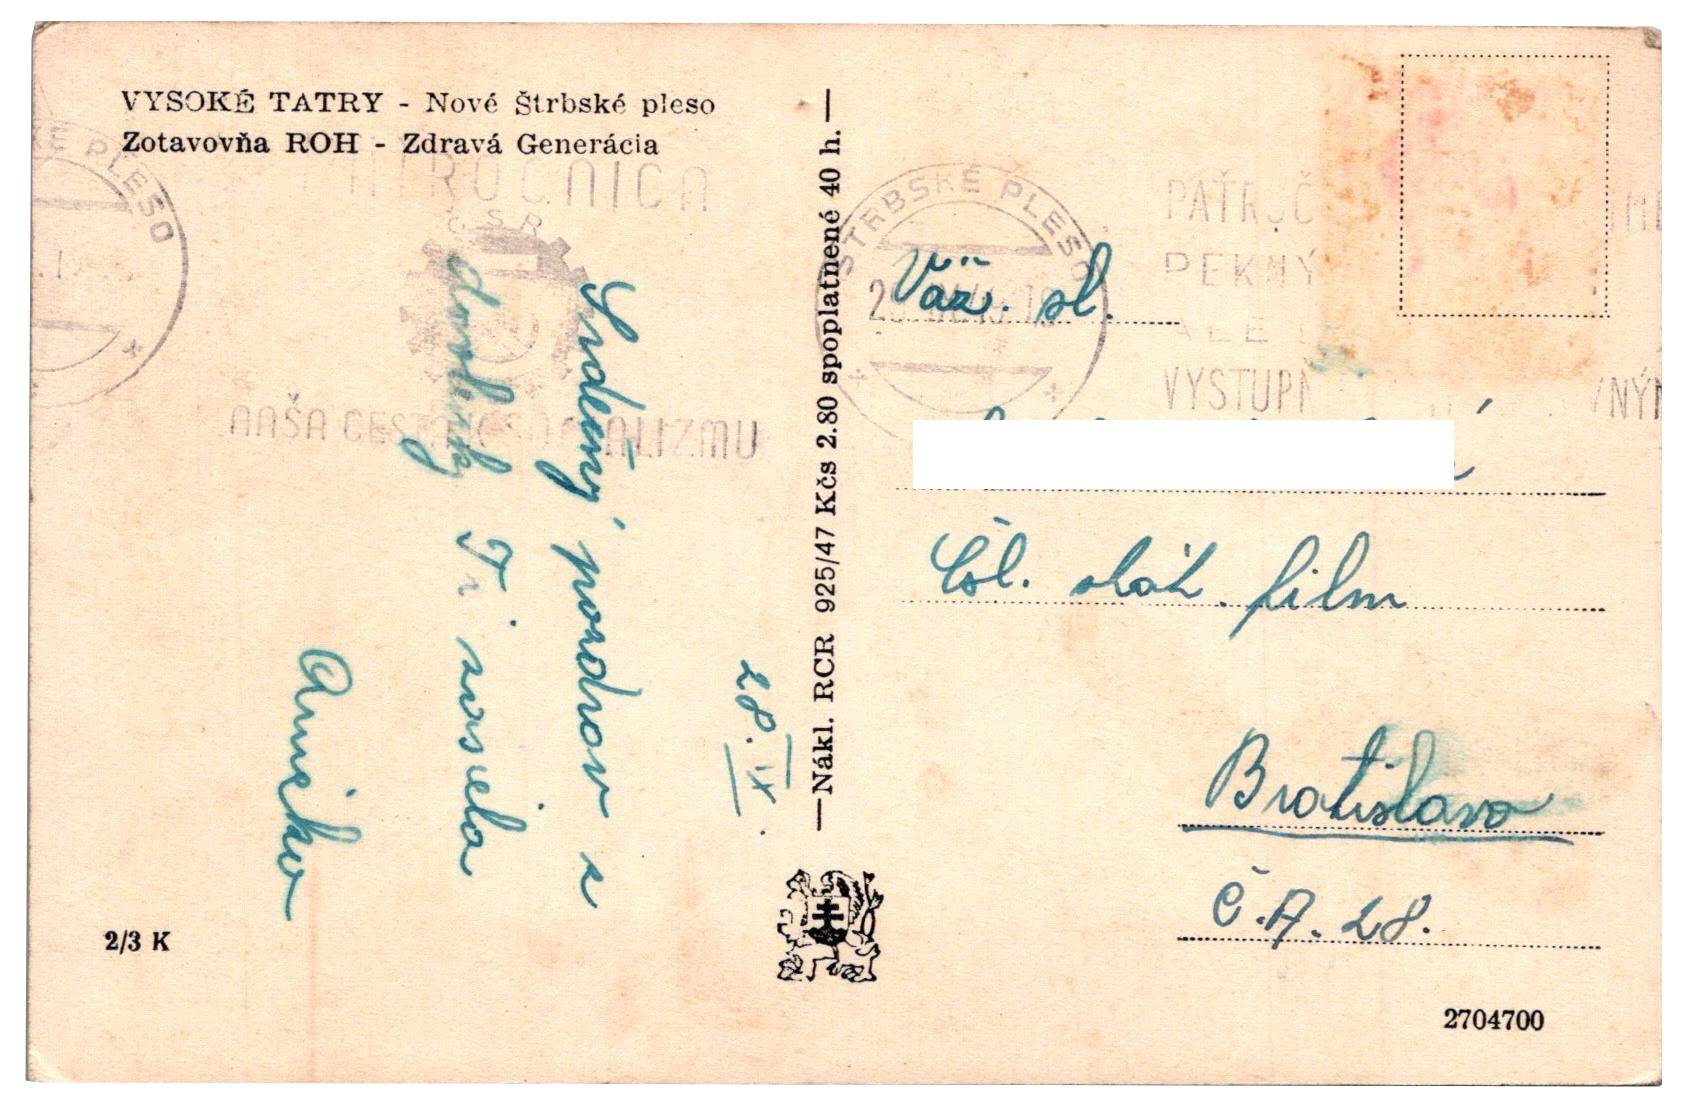 VYSOKÉ TATRY - Nové Štrbské pleso
Zotavovňa ROH - Zdravá Generácia
PLESO
ČSR
NAŠA CESTA K SOCIALIZMU
Srdečný pozdrav s
dovolenky Ti zasiela
28. IX.
2/3 K
—Nákl. RCR 925/47 Kčs 2.80 spoplatnené 40 h.—
ŠTRBSKÉ PLESO
PEKNÝ
ALE
Váž. sl.
Čsl. štát. film
Bratislava
Č.A. 28.
2704700